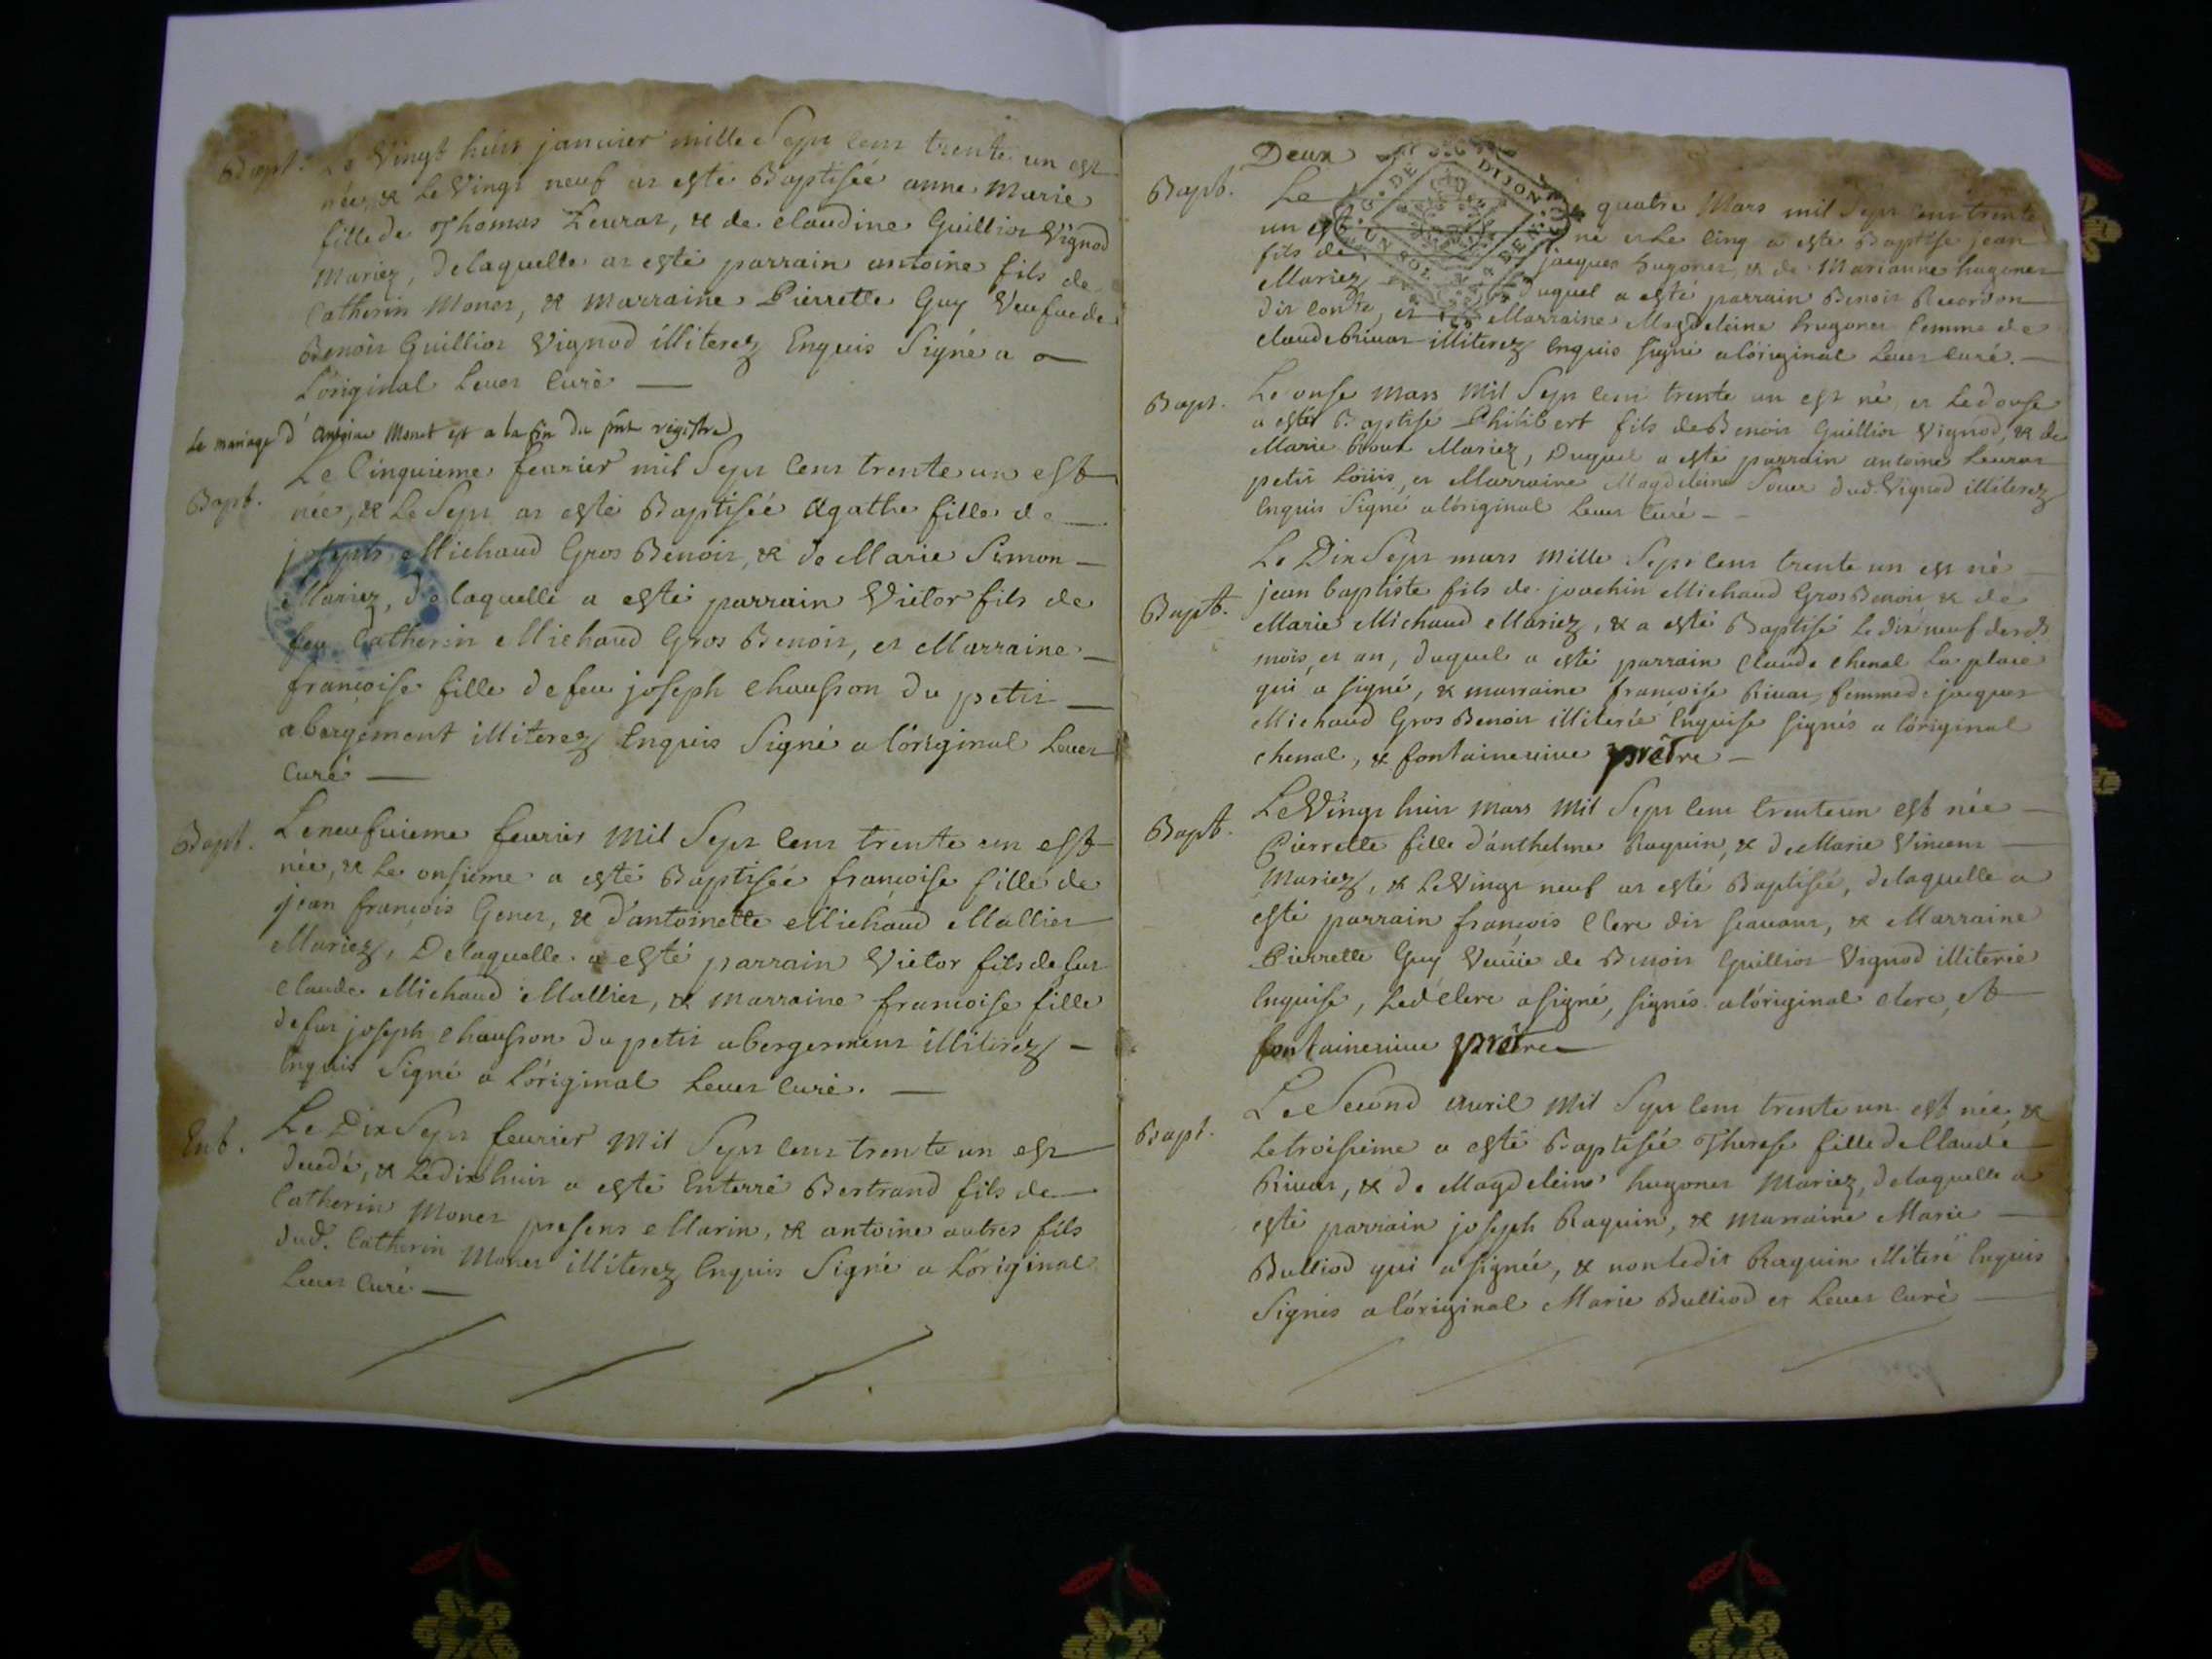 Bapt. Le Vingt huit janvier mille Sept cent trente un est
née, & Le Vingt neuf at esté Baptisée anne Marie
fille de Thomas Leurat, & de claudine Guilliot Vignod
Mariez, delaquelle at esté parrain antoine fils de
Catherin Monet, & marraine Pierrette Guy Veufue de
Benoit Guilliot Vignod illiterez Enquis Signé a
L'original Leuet Curé
le mariage d'Antoine Monet est a la fin du pnt registre
Bapt. Le Cinquieme feurier mil Sept Cent trente un est
née, & Le Sept at esté Baptisée Agathe fille de
joseph Michaud Gros Benoit, & de Marie Simon
Mariez, delaquelle a esté parrain Victor fils de
feu Catherin Michaud Gros Benoit, et Marraine
francoise fille de feu joseph Chausson du petit
abergement illiterez Enquis Signé a l'original Leuet
Curé
Bapt. Le neufuieme feurier mil Sept Cent trente un est
née, & Le onsieme a esté Baptisée francoise fille de
jean françois Genet, & d'antoinette Michaud Malliet
Mariez, Delaquelle a esté parrain Victor fils de fut
Claude Michaud Mallier, & marraine francoise fille
de fut joseph Chausson du petit abergement illiterez
Enquis Signé a L'original Leuet Curé.
Ent. Le Dix Sept feurier mil Sept Cent trente un est
decedé, & Le dix huit a esté Enterré Bertrand fils de
Catherin Monet presens Marin, & antoine autres fils
dud. Catherin Monet illiterez Enquis Signé a L'original
Leuet Curé
Deux
G. DE DIJON
UN SOL 4 DEN
Bapt. Le quatre Mars mil Sept Cent trente
un est né et Le Cinq a esté Baptisé jean
fils de jacques hugonet, & de Marianne hugonet
Mariez Duquel a esté parrain Benoit Recordon
dit Conte, et Marraine Magdeleine hugonet femme de
claude Riuat illiterez Enquis signé a l'original Leuet Curé.
Bapt. Le onse Mars Mil Sept Cent trente un est né, et Le douse
a esté Baptisé Philibert fils de Benoit Guilliot Vignod, & de
Marie Mariez, Duquel a esté parrain antoine Leurat
petit Loüis, et Marraine Magdeleine Soeur dud. Vignod illiterez
Enquis Signé a l'original Leuet Curé
Bapt. Le Dix Sept mars Mille Sept Cent trente un est né
jean baptiste fils de joachin Michaud Gros Benoit & de
Marie Michaud Mariez, & a esté Baptisé Le dix neuf desd.
mois, et an, duquel a esté parrain Claude Chenal La place
qui a signé, & marraine francoise Riuat femme de jacques
Michaud Gros Benoit illiterée Enquise signés a l'original
Chenal, & fontaineuiue prêtre
Bapt. Le Vingt huit Mars Mil Sept Cent trente un est née
Pierrette fille d'anthelme Raquin, & de Marie Vincent
Mariez, & Le Vingt neuf at esté Baptisée, delaquelle a
esté parrain françois Clerc dit scauant, & Marraine
Pierrette Guy Veuue de Benoit Guilliot Vignod illiterée
Enquise, Led. Clerc a signé, signés a l'original Clerc, et
fontaineuiue prêtre
Bapt. Le Second auril Mil Sept Cent trente un est née, &
Le troisieme a esté Baptisée Therese fille de Claude
Riuat, & de Magdeleine hugonet Mariez, delaquelle a
esté parrain joseph Raquin, & Marraine Marie
Bulliod qui a signée, & non ledit Raquin illiteré Enquis
Signés a l'original Marie Bulliod et Leuet Curé